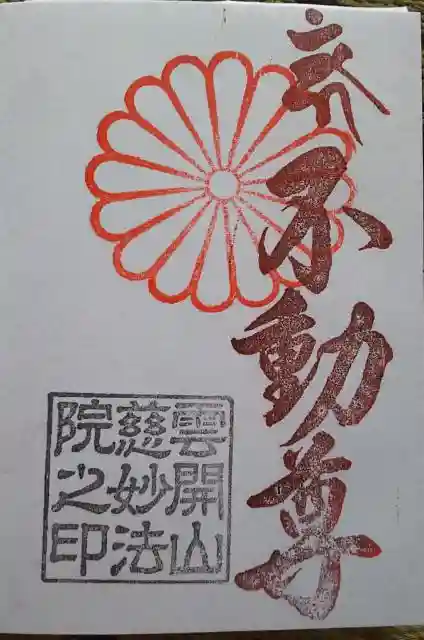 不動尊
雲開山
慈妙法
院之印